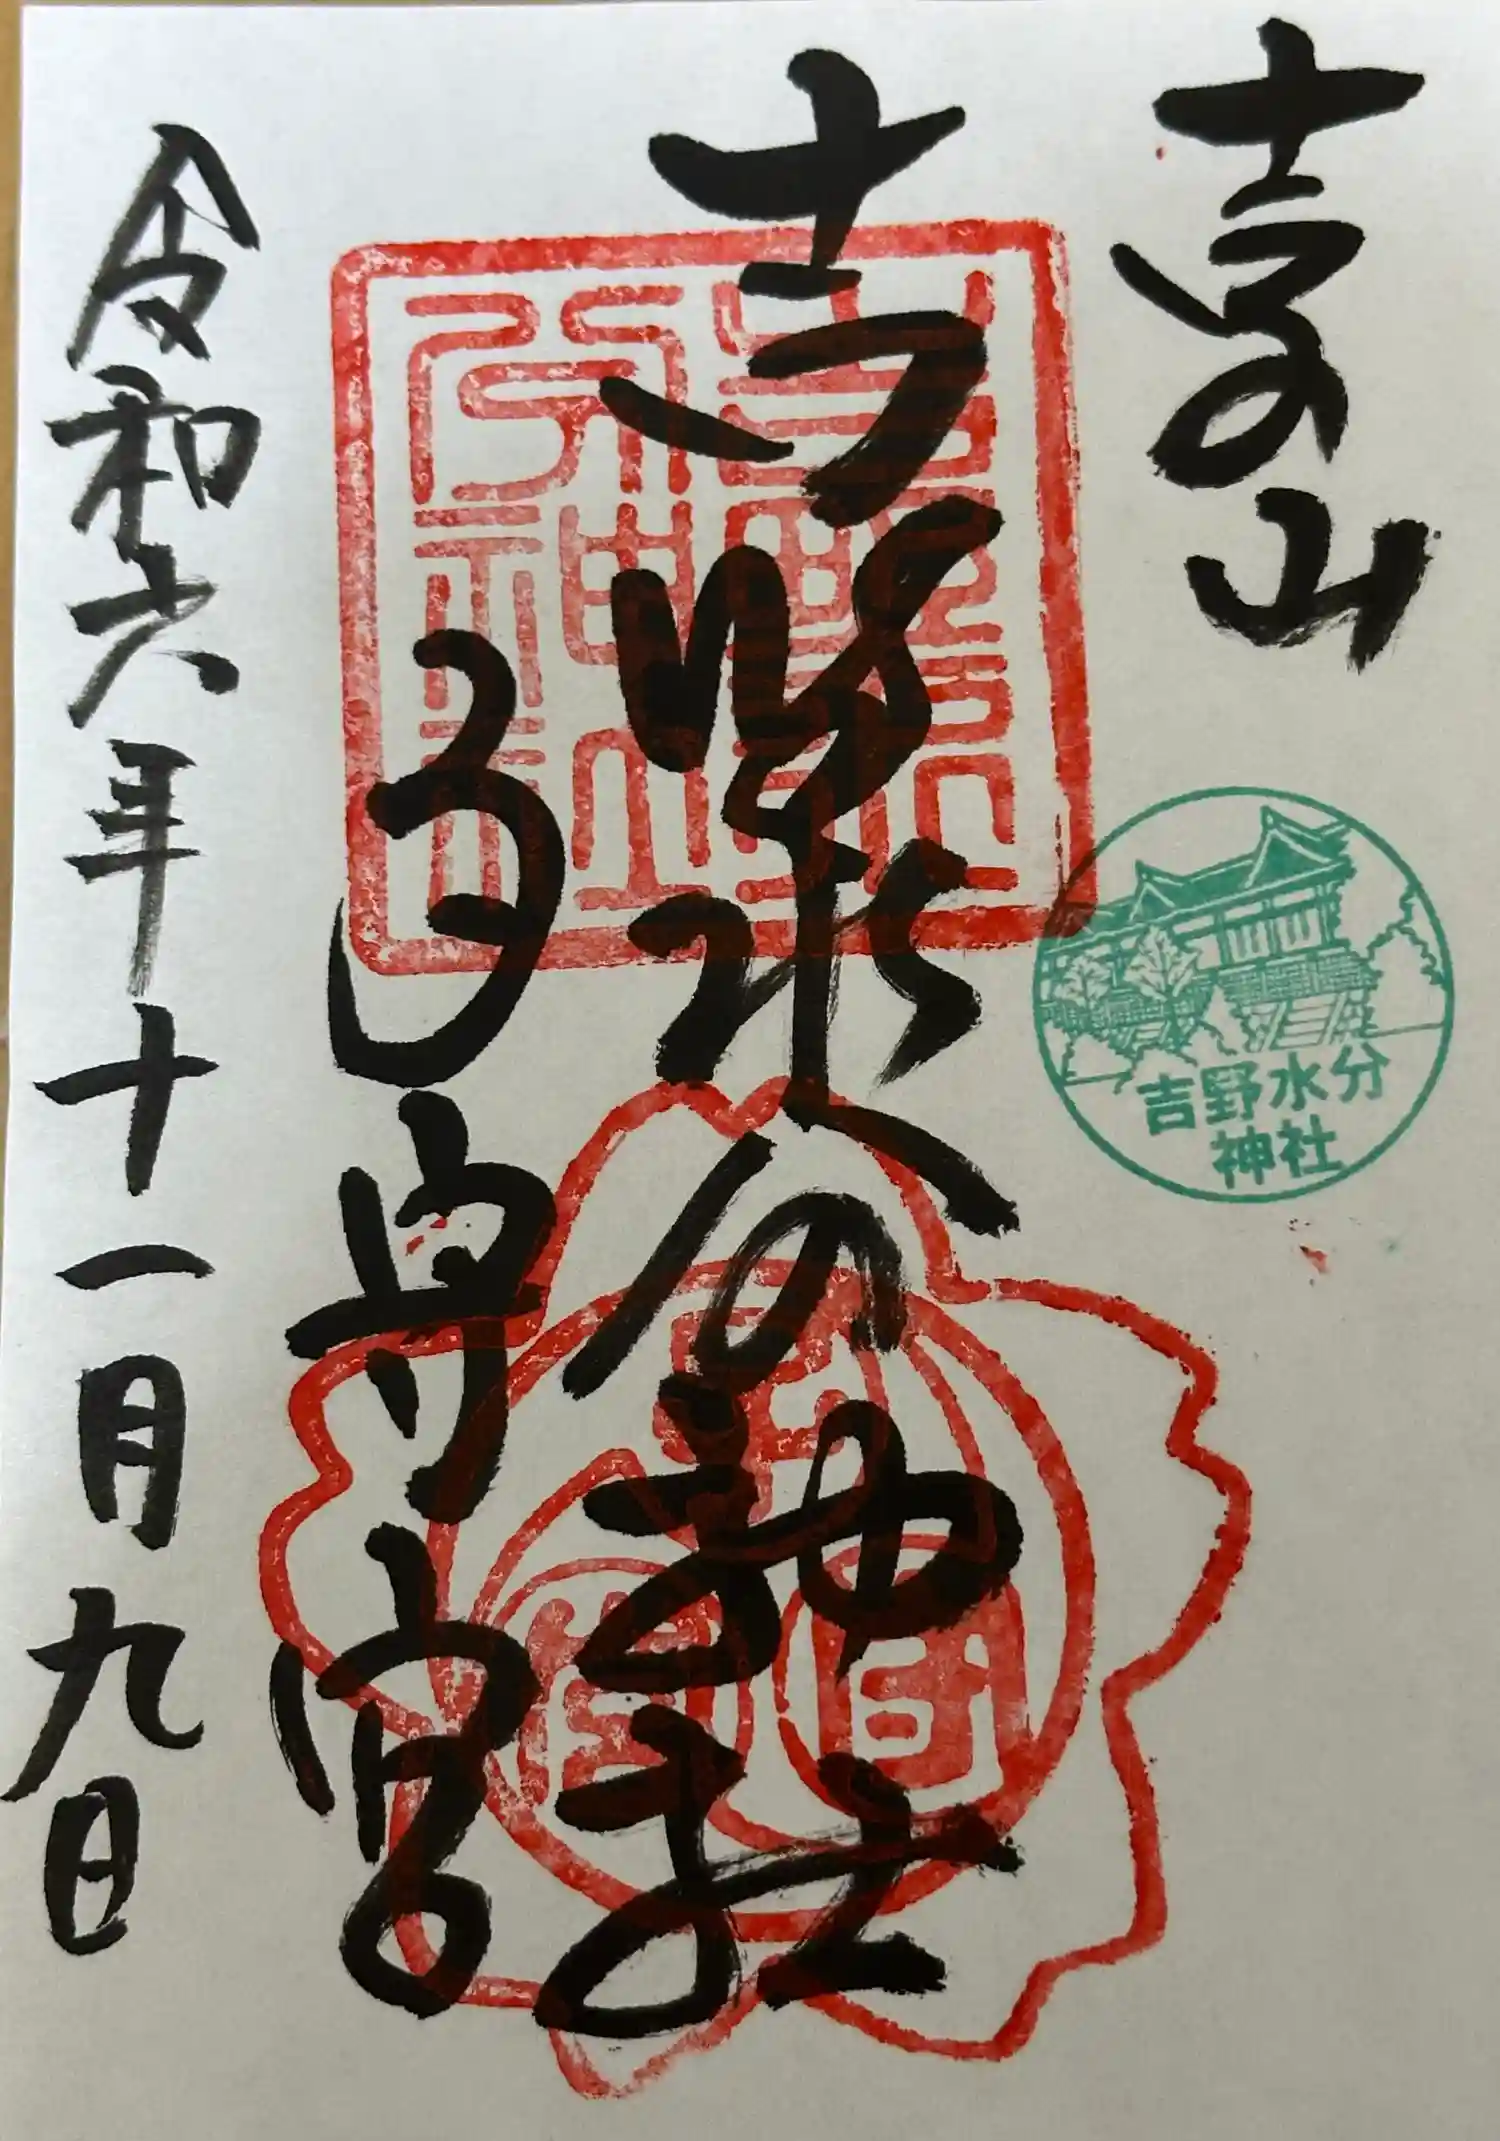 吉野山
吉野水分神社
子守宮
令和六年十一月九日
吉野水分
神社